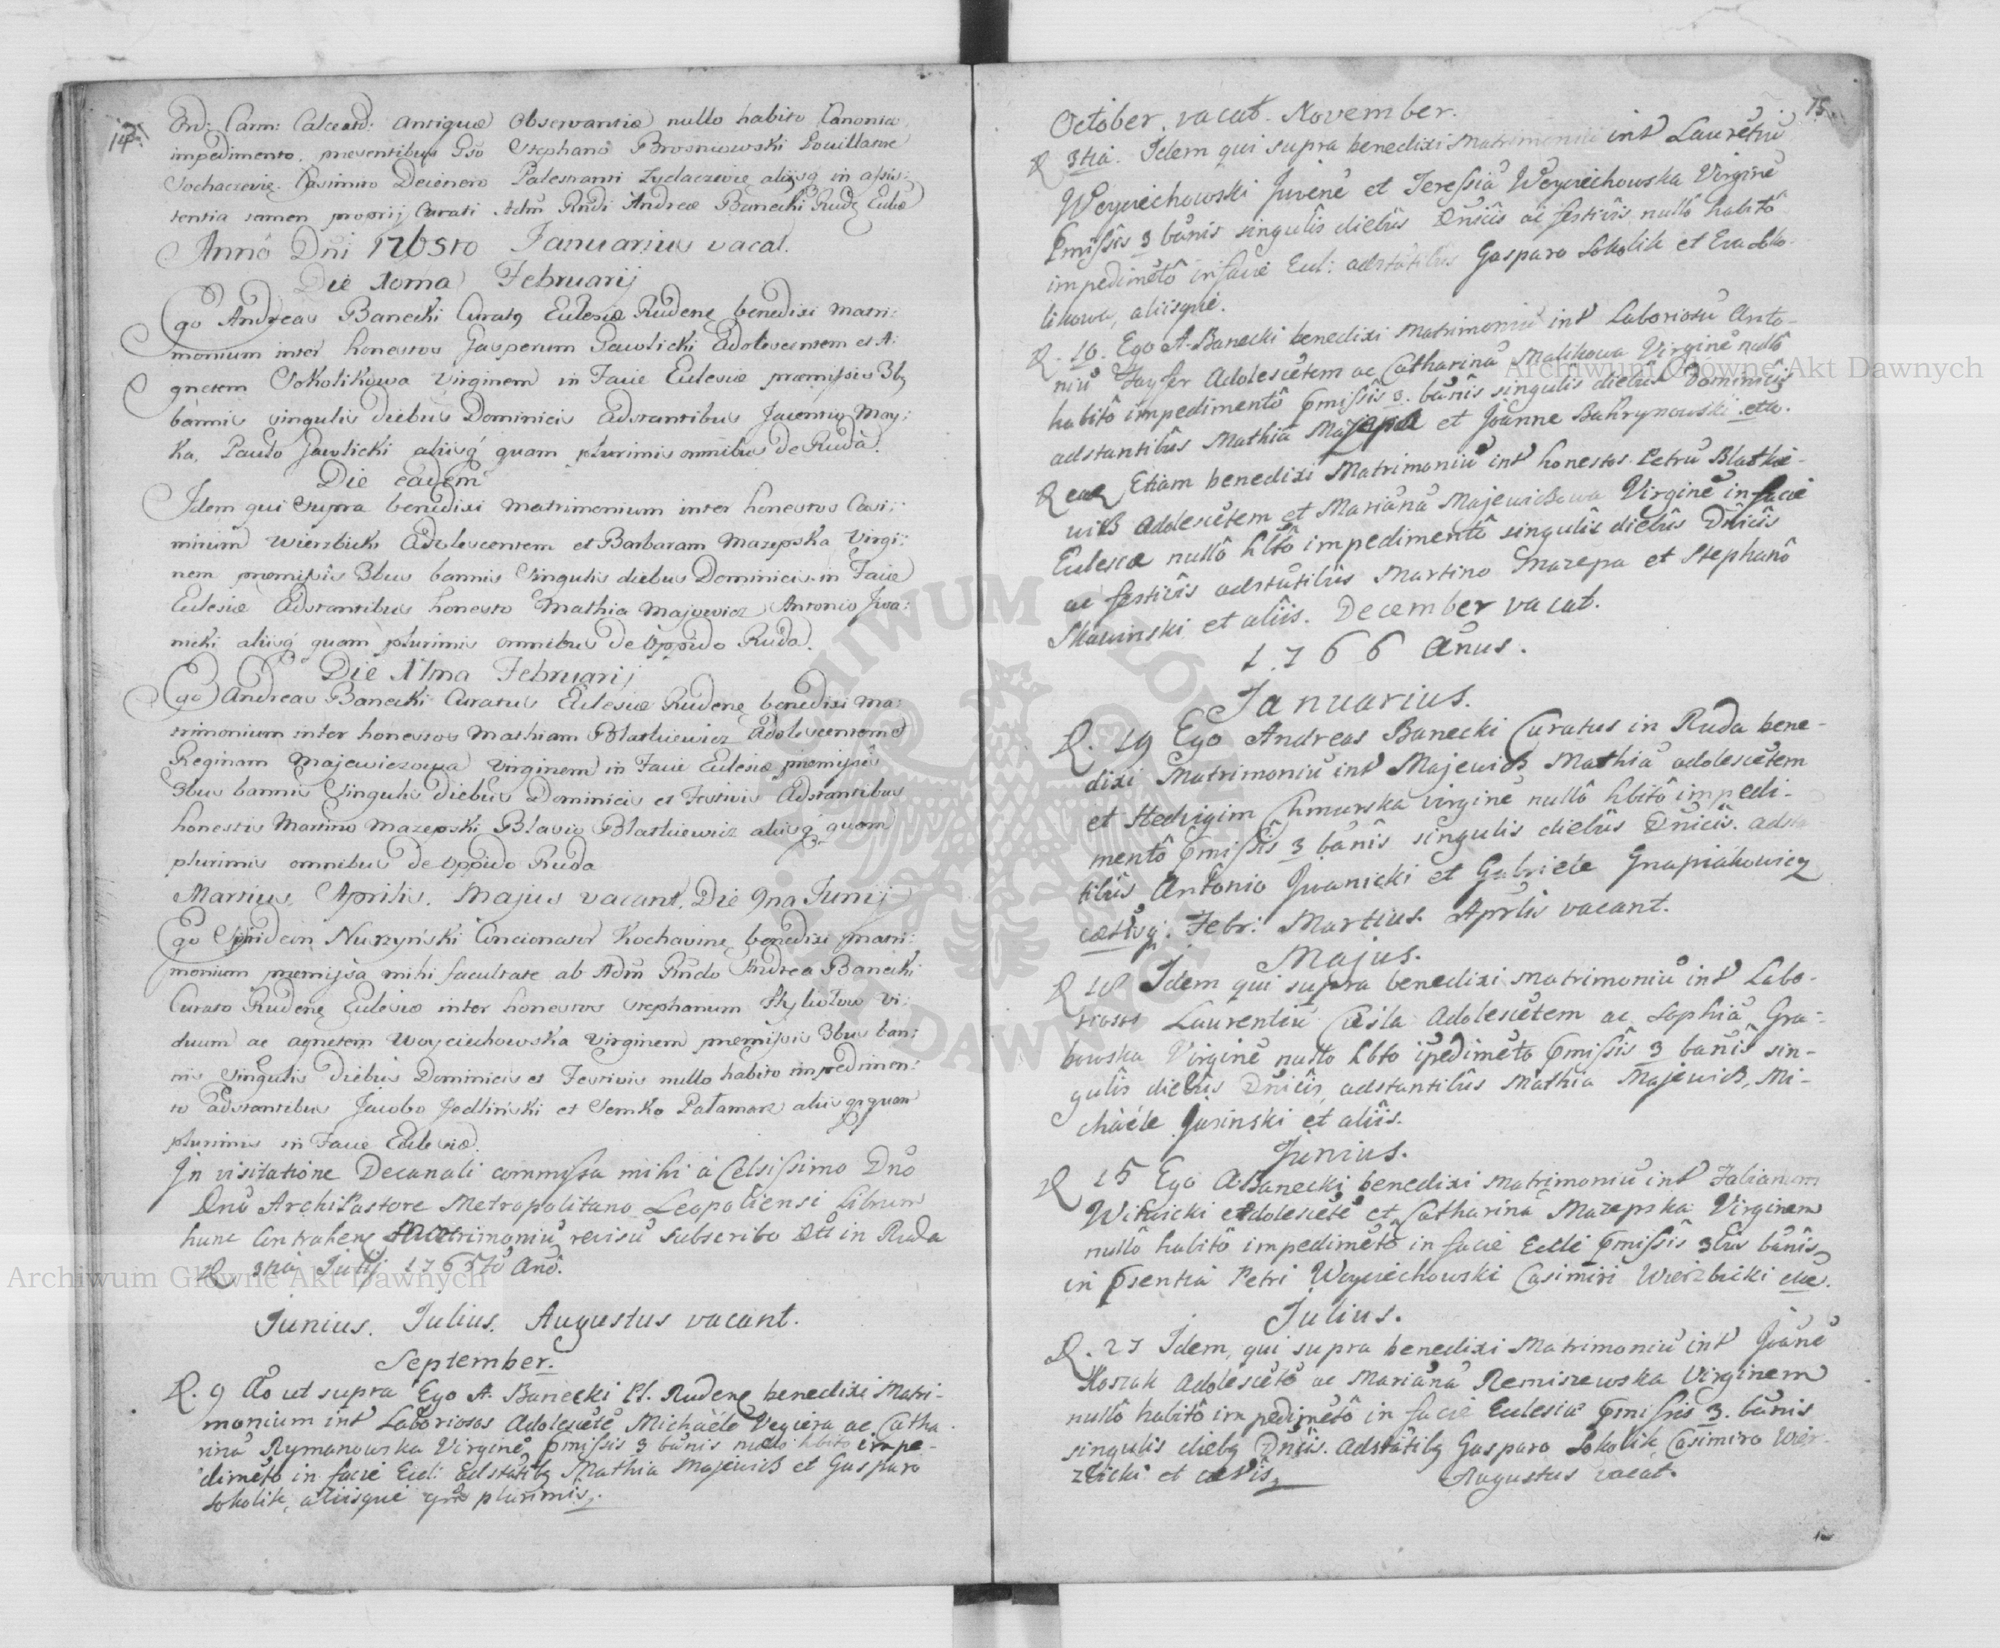 14
Ord: Carm: Calceatd: Antiquæ Observantiæ nullo habito Canonico
impedimento, presentibus Gso Stephano Brosniowski
Sochaczeviæ. Casimiro Palestranti aliisq in assis:
tentia tamen proprij Curati Adm Rndi Andreæ Banecki Rudę Eccliæ
Anno Dni 1765to Januarius vacat.
Die Februarij
Ego Andreas Banecki Curatq Eclesiæ Rudenę benedixi matri:
monium inter honestos Gasperum Pawlicki Adolescentem et A:
gnetem Sokolikowa Virginem in Facie Eclesiæ præmissis 3bq
bannis singulis diebus Dominicis Adstantibus May:
ka, Paulo Pawlicki aliisq quam plurimis omnibus de Ruda.
Die eadem
Idem qui supra benedixi matrimonium inter honestos Casi:
mirum Wierzbicki Adolescentem et Barbaram Mazepska Virgi:
nem præmissis 3bus bannis singulis diebus Dominicis in Facie
Eclesiæ Adstantibus honesto Mathia Majewicz Antonio Jwa:
nicki aliisq quam plurimis omnibus de Oppido Ruda.
Die Februarij
Ego Andreas Banecki Curatus Eclesiæ Rudenę benedixi ma:
trimonium inter honestos Mathiam Blatkiewicz Adolescentem et
Reginam Majewiczowa Virginem in Facie Eclesiæ præmissis
3bus bannis singulis diebus Dominicis et Festivis Adstantibus
honestis Martino Mazepski Blasio Blatkiewicz aliisq quam
plurimis omnibus de Oppido Ruda
Martius, Aprilis, Majus vacant. Die 9na Junij
Ego Nurzyński Concionator Kochavinę benedixi matri:
monium præmissa mihi facultate ab Adm Rndo Andrea Banecki
Curato Rudenę Eclesiæ inter honestos Stephanum Vi:
duum ac agnetem Woyciechowska Virginem præmissis 3bus ban:
nis singulis diebus Dominicis et Festivis nullo habito impedimen:
to adstantibus Jacobo Jedliński et Semko Pałamarz aliisq quam
plurimis in Facie Eclesiæ.
In visitatione Decanali commissa mihi à Celsissimo Dno
Dno ArchiPastore Metropolitano Leopoliensi Librum
hunc Contrahens Matrimoniu revisu subscribo in Ruda
D 3tia Julij 1765to Ano.
Junius. Julius. Augustus vacant.
September.
D. 9 Ao ut supra Ego A. Banecki Ct. Rudenę benedixi Matri-
monium int Laboriosos Adolescete Michaele Vegiera ac Catha
rina Rymanowska Virgine, pmissis 3 banis nullo hbito impe-
dimeto in facie Ecel: Edstatibq Mathia Majewicz et Gasparo
Sokolik, aliisque plurimis.
15
October. vacat. November.
D 3tia. Idem qui supra benedixi Matrimoniu int Lauretiu
Woyciechowski Juvene et Teressia Woyciechowska Virgine
pmissis 3 banis singulis diebus Dnicis ac festivis nullo habito
impedimeto in facie Eccl: adstatibus Gasparo Sokolik et Eva Soko-
likowa, aliisque.
D. 10. Ego A. Banecki benedixi Matrimoniu int Laboriosu Anto-
niu Fayfer Adolescetem ac Catharina Malikowa Virgine nullo
habito impedimento pmissis 3. banis singulis diebus Dominicis
adstantibus Mathia Mazepa et Joanne Bakrynowski etc.
D eaq Etiam benedixi Matrimoniu int honestos Petru Blatkie-
wicz Adolescetem et Mariana Majewiczowa Virgine in facie
Eclesiæ nullo hbto impedimento singulis diebus Dnicis
ac festivis adstatibus Martino Mazepa et Stephano
Skawinski et aliis. December vacat.
1766 Anus.
Januarius.
D. 19 Ego Andreas Banecki Curatus in Ruda bene-
dixi Matrimoniu int Majewicz Mathia adolescetem
et Hedvigim Chmurska virgine nullo hbito impedi-
mento pmissis 3 banis singulis diebus Dnicis. adsta
tibus Antonio Jwanicki et Gabriele Gnapiakowicz
Febr: Martius. Aprlis vacant.
Majus.
D 18 Idem qui supra benedixi Matrimoniu int Labo-
riosos Laurentiu Cieśla Adolescetem ac Sophia Gra-
bowska Virgine nullo hbto ipedimeto pmissis 3 banis sin-
gulis diebus Dnicis, adstantibus Mathia Majewicz, Mi-
chaele Jasinski et aliis.
Junius.
D 15 Ego ABanecki benedixi Matrimoniu int Fabianum
Witwicki adolescete et Catharina Mazepska Virginem
nullo habito impedimeto in facie Eclle pmissis 3bus banis,
in psentia Petri Woyciechowski Casimiri Wierzbicki etc.
Julius.
D. 27 Idem, qui supra benedixi Matrimoniu int Joane
Koszak Adolesceto ac Mariana Remiszewska Virginem
nullo habito impedimeto in facie Eclesia pmissis 3. banis
singulis diebq Dniis. Adstatibq Gasparo Sokolik, Casimiro Wier-
zbicki et
Augustus vacat.
Archiwum Główne Akt Dawnych
Archiwum Główne Akt Dawnych
ARCHIWUM GŁÓWNE AKT DAWNYCH